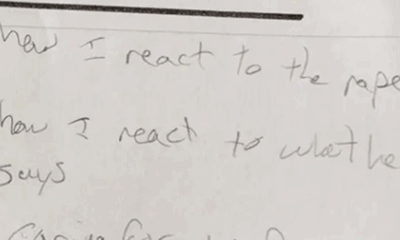 how I react to the rape
how I react to what he
says